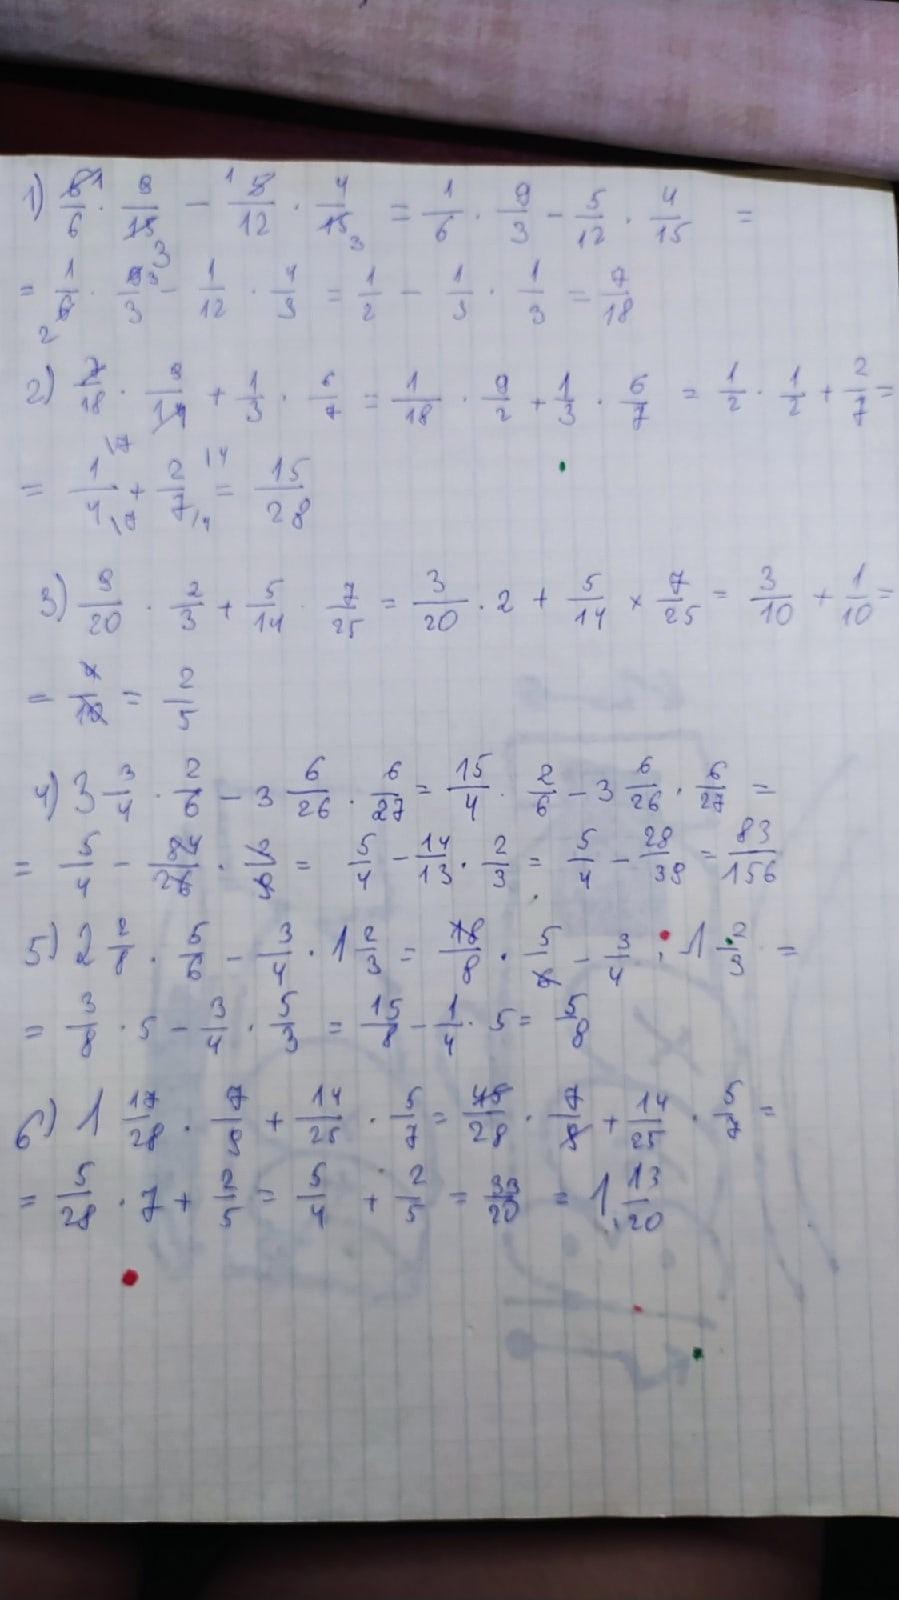 1) 5/6 · 9/15 − 5/12 · 4/15 = 1/6 · 9/3 − 5/12 · 4/15 =
= 1/6 · 9/3 − 1/12 · 4/3 = 1/2 − 1/3 · 1/3 = 7/18
2) 7/18 · 9/14 + 1/3 · 6/7 = 1/18 · 9/2 + 1/3 · 6/7 = 1/2 · 1/2 + 2/7 =
= 1/4 + 2/7 = 15/28
3) 9/20 · 2/3 + 5/14 · 7/25 = 3/20 · 2 + 5/14 × 7/25 = 3/10 + 1/10 =
= 4/10 = 2/5
4) 3 3/4 · 2/6 − 3 6/26 · 6/27 = 15/4 · 2/6 − 3 6/26 · 6/27 =
= 5/4 − 84/26 · 2/9 = 5/4 − 14/13 · 2/3 = 5/4 − 28/39 = 83/156
5) 2 2/8 · 5/6 − 3/4 · 1 2/3 = 18/8 · 5/6 − 3/4 · 1 2/3 =
= 3/8 · 5 − 3/4 · 5/3 = 15/8 − 1/4 · 5 = 5/8
6) 1 17/28 · 7/9 + 14/25 · 5/7 = 45/28 · 7/9 + 14/25 · 5/7 =
= 5/28 · 7 + 2/5 = 5/4 + 2/5 = 33/20 = 1 13/20